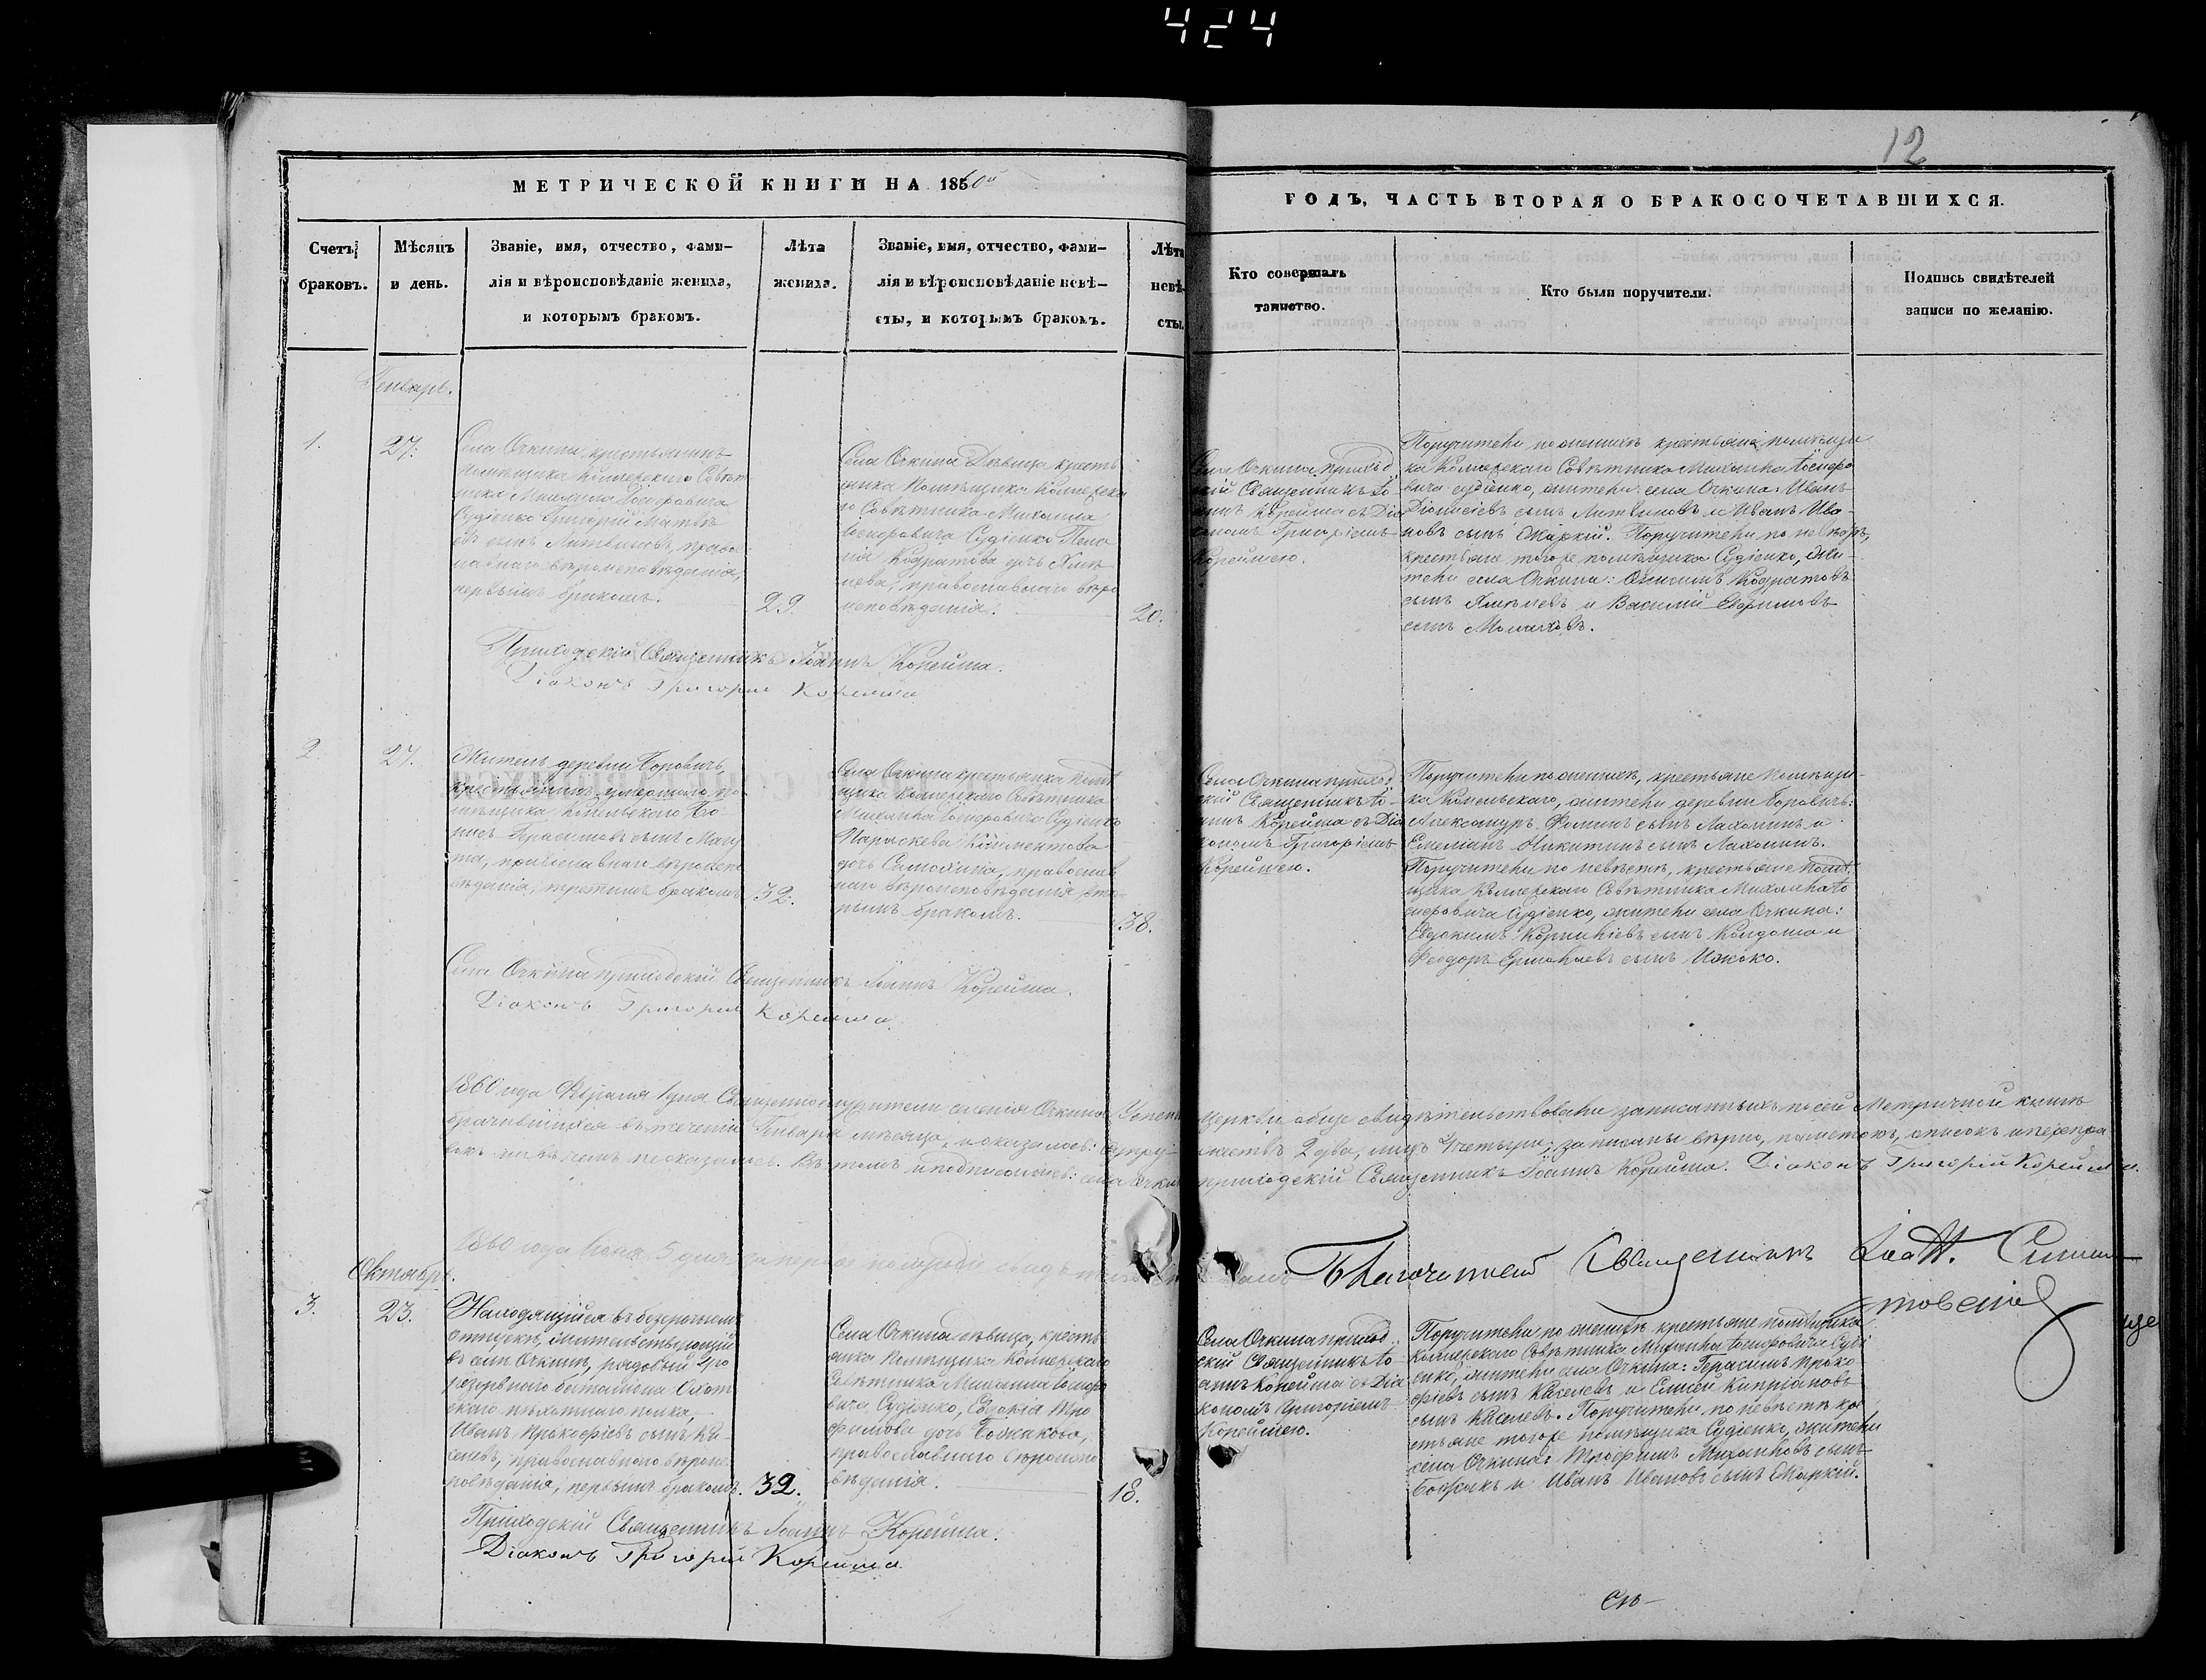 424
12
МЕТРИЧЕСКОЙ КНИГИ НА 1860й
ГОДЪ, ЧАСТЬ ВТОРАЯ О БРАКОСОЧЕТАВШИХСЯ.
Счетъ
браковъ.
Мѣсяцъ
и день.
Званіе, имя, отчество, фами-
лія и вѣроисповѣданіе жениха,
и которымъ бракомъ.
Лѣта
жениха.
Званіе, имя, отчество, фами-
лія и вѣроисповѣданіе невѣ-
сты, и которымъ бракомъ.
Лѣта
невѣ-
сты.
Кто совершалъ
таинство.
Кто были поручители.
Подпись свидѣтелей
записи по желанію.
Генварь.
1.
27.
Села Очкина, крестьянинъ
помѣщика Коллежскаго Совѣт
ника Михаила Іосифовича
Судіенко Григорій Матвѣ
евъ сынъ Литвиновъ, право
славнаго вѣроисповѣданія,
первымъ бракомъ.
29.
Села Очкина Дѣвица крестья
янка Помѣщика Коллежска
го Совѣтника Михаила
Іосифовича Судіенко Пела
гія Кодратова дочь
православнаго вѣро
исповѣданія.
20.
Села Очкина приход
скій Священникъ Іо
аннъ Корейша съ Діа
кономъ Григоріемъ
Корейшею.
Поручители по женихѣ крестьяне помѣщи
ка Коллежскаго Совѣтника Михаила Іосифо
вича Судіенко, жители села Очкина: Иванъ
Діонисіевъ сынъ Литвиновъ и Иванъ Ива-
новъ сынъ Жаркій. Поручители по невѣстѣ,
крестьяне тогоже помѣщика Судіенко, жи-
тели села Очкина: Онисимъ Кодратовъ
сынъ и Василій Евфимовъ
сынъ
Приходскій Священникъ Іоаннъ Корейша.
Діаконъ Григорій Корейша
2.
27.
Житель деревни Боровичъ,
крестьянинъ умершаго по
мѣщика Бо-
рисъ Герасимовъ сынъ
православнаго вѣроиспо
вѣданія, третьимъ бракомъ
32.
Села Очкина крестьянка Помѣ
щика Коллежскаго Совѣтника
Михаила Іосифовича Судіенко
Параскева Климентова
дочь Самохина, православ
наго вѣроисповѣданія, вто-
рымъ бракомъ.
38.
Села Очкина приход
скій Священникъ Іо-
аннъ Корейша съ Діа
кономъ Григоріемъ
Корейшею.
Поручители по женихѣ, крестьяне Помѣщи-
ка жители деревни Боровичъ:
Александръ Фоминъ сынъ Лахоминъ и
Емеліанъ Никитинъ сынъ Лахоминъ.
Поручители по невѣстѣ, крестьяне Помѣ
щика Коллежскаго Совѣтника Михаила Іо
сифовича Судіенко, жители села Очкина:
Евдокимъ Корниліевъ сынъ и
Феодоръ Ермолаевъ сынъ
Села Очкина приходскій Священникъ Іоаннъ Корейша.
Діаконъ Григорій Корейша.
1860 года Февраля 1 дня Священнослужители селенія Очкина Успен церкви обще свидѣтельствовали записанныхъ по сей Метричной книгѣ
брачившихся въ теченіи Генваря мѣсяца, и оказалось: супру- жествъ 2 два, лицъ 4 четыри; записаны вѣрно,
ни въ чемъ не оказалось. Въ томъ и подписались: села Очкина приходскій Священникъ Іоаннъ Корейша. Діаконъ Григорій Корейша.
1860 года Іюня 5 дня за первое полугодіе
Благочинный Священникъ
Октябрь.
3.
23.
Находящійся въ безсрочномъ
отпускѣ, жительствующій
въ селѣ Очкинѣ, рядовый 4го
резервнаго баталіона Охот
скаго пѣхотнаго полка,
Иванъ Прокофіевъ сынъ Ки-
селевъ, православнаго вѣроис
повѣданія, первымъ бракомъ.
32.
Села Очкина дѣвица, кресть
янка Помѣщика Коллежскаго
Совѣтника Михаила Іосифо
вича Судіенко, Евдокія Тро
фимова дочь Божкова,
православнаго вѣроиспо
вѣданія.
18.
Села Очкина приход
скій Священникъ Іо-
аннъ Корейша съ Діа
кономъ Григоріемъ
Корейшею.
Поручители по женихѣ крестьяне помѣщика
Коллежскаго Совѣтника Михаила Іосифовича Суді
енко, жители села Очкина: Герасимъ Проко
фіевъ сынъ Киселевъ и Елисей Кипріановъ
сынъ Киселевъ. Поручители по невѣстѣ кре
стьяне тогоже помѣщика Судіенко, жители
села Очкина: Трофимъ Михайловъ сынъ
Божокъ и Иванъ Ивановъ сынъ Жаркій.
Приходскій Священникъ Іоаннъ Корейша.
Діаконъ Григорій Корейша